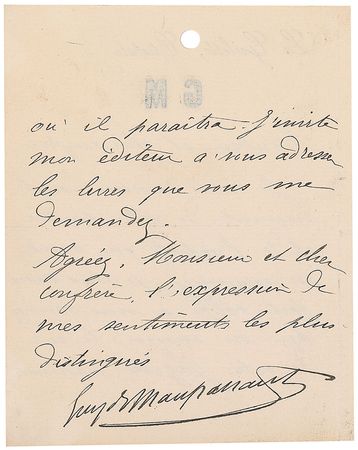 où il paraîtra. J'invite
mon éditeur a vous adresser
les livres que vous me
demandez.
Agréez, Monsieur et cher
confrère, l'expression de
mes sentiments les plus
distingués
Guy de Maupassant